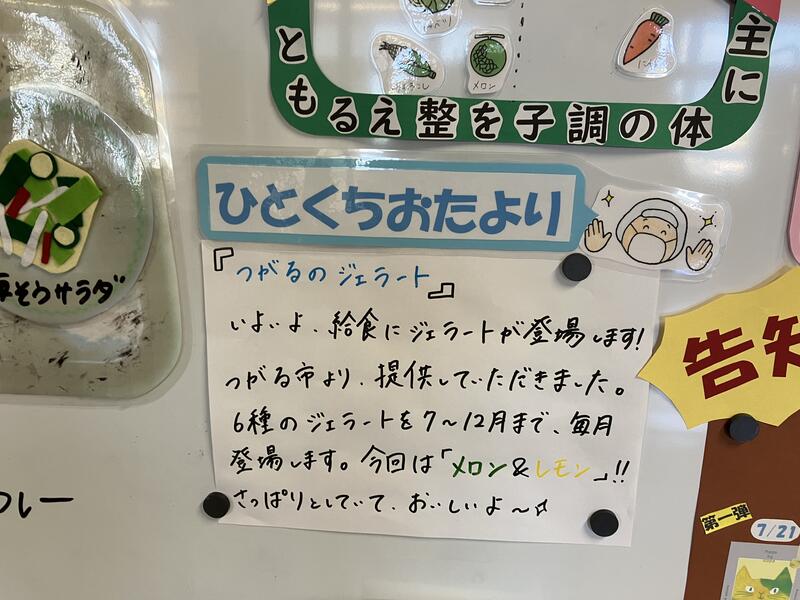 主に
体の調子を整えるもと
メロン
ひとくちおたより
『つがるのジェラート』
いよいよ、給食にジェラートが登場します!
つがる市より、提供していただきました。
6種のジェラートを7〜12月まで、毎月
登場します。今回は「メロン&レモン」!!
さっぱりとしていて、おいしいよ〜☆
そうサラダ
カレー
告知
第一弾
7/21